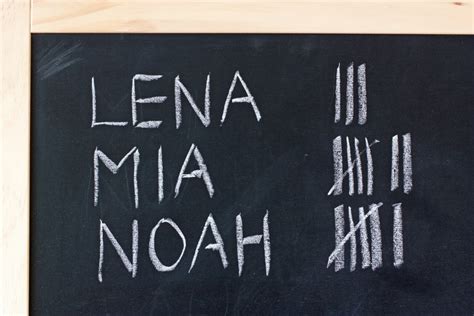 LENA |||
MIA 𝍸 ||
NOAH 𝍸 |